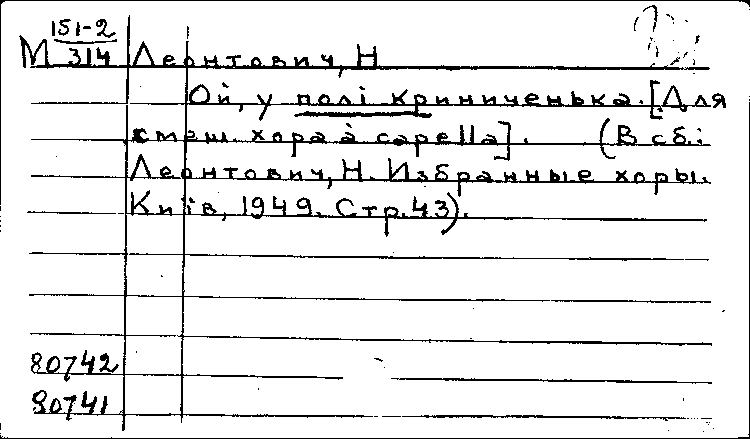 М 151-2/314 Леонтович, Н
Ой, у полі криниченька. [Для
смеш. хора à capella]. (В сб.:
Леонтович, Н. Избранные хоры.
Київ, 1949. Стр. 43).
80742
80741